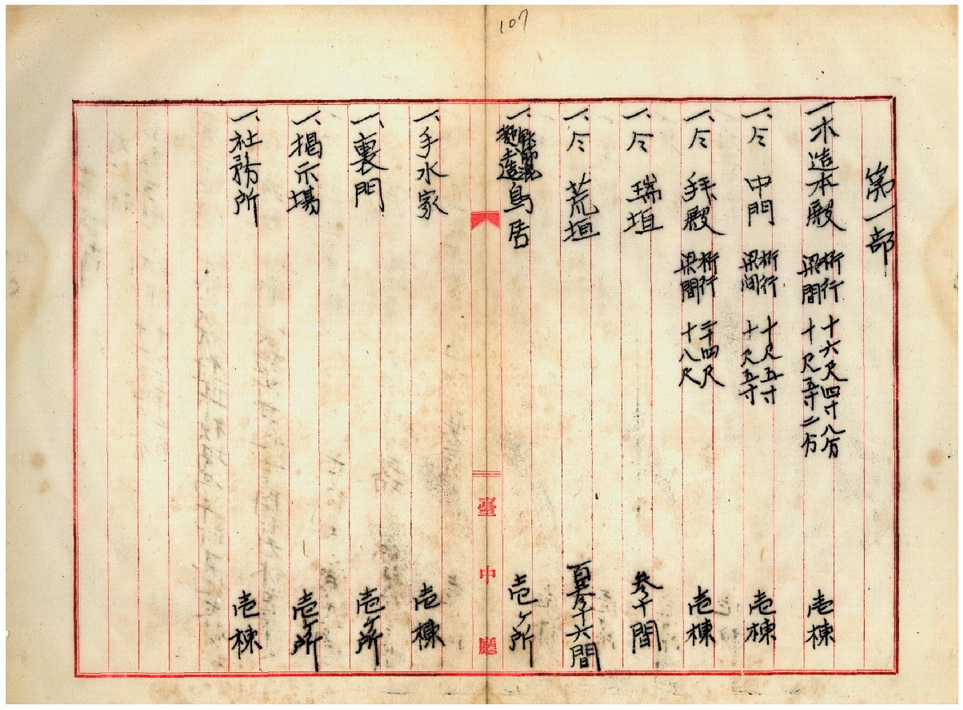 107
第一部
一、木造本殿 桁行 十六尺四寸八分 梁間 十尺五寸二分 壱棟
一、仝 中門 桁行 十尺五寸 梁间 十尺五寸 壱棟
一、仝 拝殿 桁行 二十四尺 梁間 十八尺 壱棟
一、仝 瑞垣 参十間
一、仝 荒垣 百参十六間
一、鳥居 壱ヶ所
臺中廳
一、手水家 壱棟
一、裏門 壱ヶ所
一、揭示場 壱ヶ所
一、社務所 壱棟